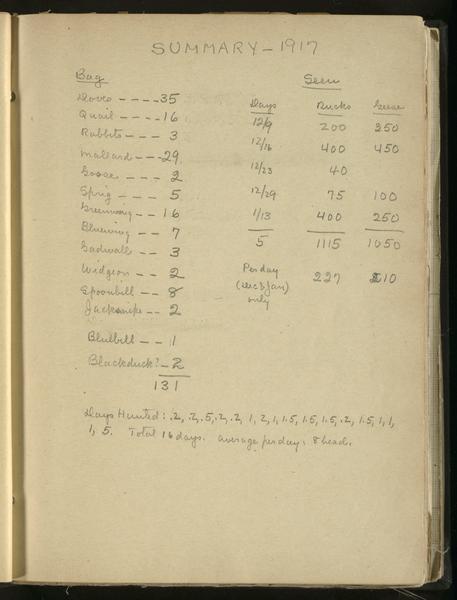 SUMMARY - 1917
Bag
Doves ---- 35
Quail --- 16
Rabbits --- 3
Mallard --- 29
Goose -- 2
Sprig -- 5
Greenwing -- 16
Bluewing -- 7
Gadwall -- 3
Widgeon -- 2
Spoonbill -- 8
Jacksnipe -- 2
Bluebill -- 1
Blackduck? - 2
131
Seen
Days Ducks Geese
12/9 200 250
12/16 400 450
12/23 40
12/29 75 100
1/13 400 250
5 1115 1050
Per day 227 210
(Dec & Jan)
only
Days Hunted: .2, .2, .5, .2, .2, 1, 2, 1, 1.5, 1.5, 1.5, .2, 1.5, 1, 1,
1, 5. Total 16 days. average per day: 8 head.